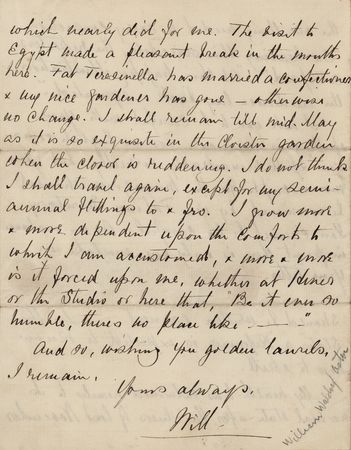 which nearly did for me. The visit to
Egypt made a pleasant break in the months
here. Fat Teresinella has married a confectioner
& my nice gardener has gone – otherwise
no change. I shall remain till mid. May
as it is so exquisite in the Cloister garden
when the clover is reddening. I do not think
I shall travel again, except for my semi-
annual flittings to & fro. I grow more
& more dependent upon the comforts to
which I am accustomed, & more & more
is it forced upon me, whether at Hever
or the Studio or here that, "Be it ever so
humble, theres no place like — — "
And so, wishing you golden laurels,
I remain.
Yours always.
Will
William Waldorf Astor